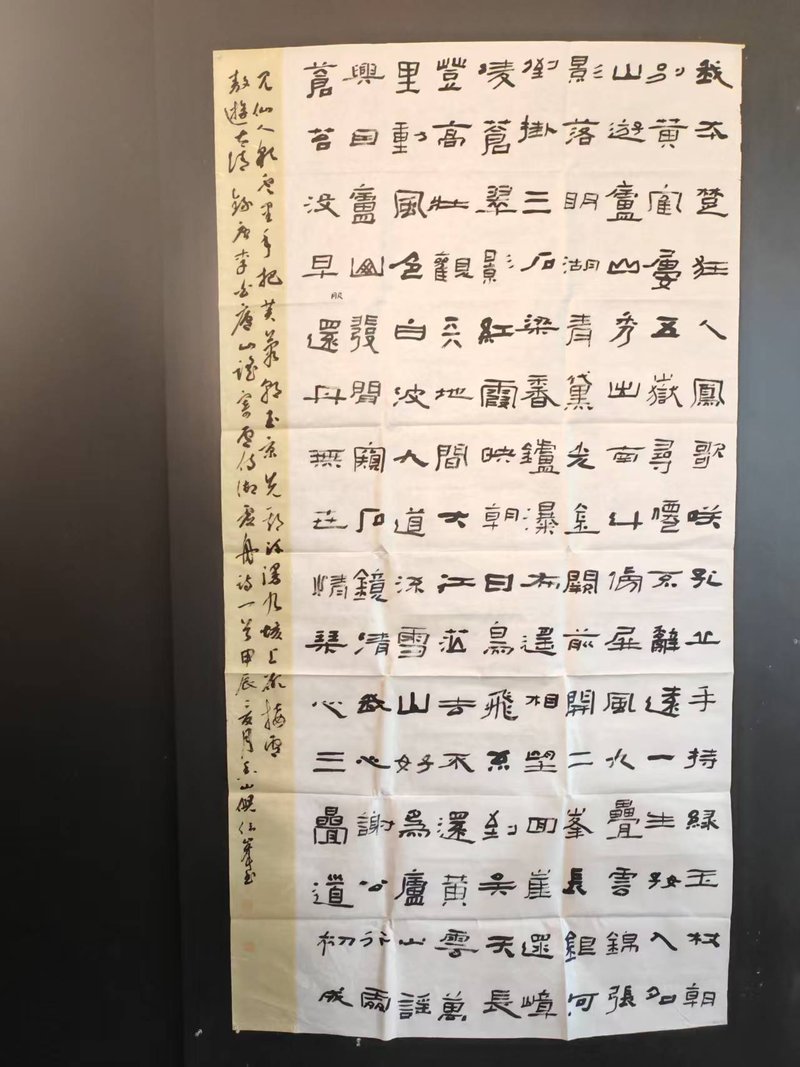 我本楚狂人鳳歌咲孔丘手持綠玉杖朝
別黃鶴婁五嶽尋僊不辭遠一生好入名
山遊廬山秀出南斗傍屏風九疊雲錦張
影落明湖青黛光金闕前開二峯長銀河
倒掛三石梁香鑪瀑布遙相望回崖遝嶂
凌蒼翠影紅霞映朝日鳥飛不到吳天長
登高壯觀天地間大江茫去不還黃雲萬
里動風色白波九道流雪山好為廬山謠
興因廬山發閒窺石鏡清我心謝公行處
蒼苔沒早服還丹無世情琴心三疊道初成
見仙人彩雲里手把芙蓉朝玉京先期汗漫九垓上願接盧
敖遊太清 錄唐李白廬山謠寄盧侍御虛舟詩一首甲辰夏月金山倪仕峯書